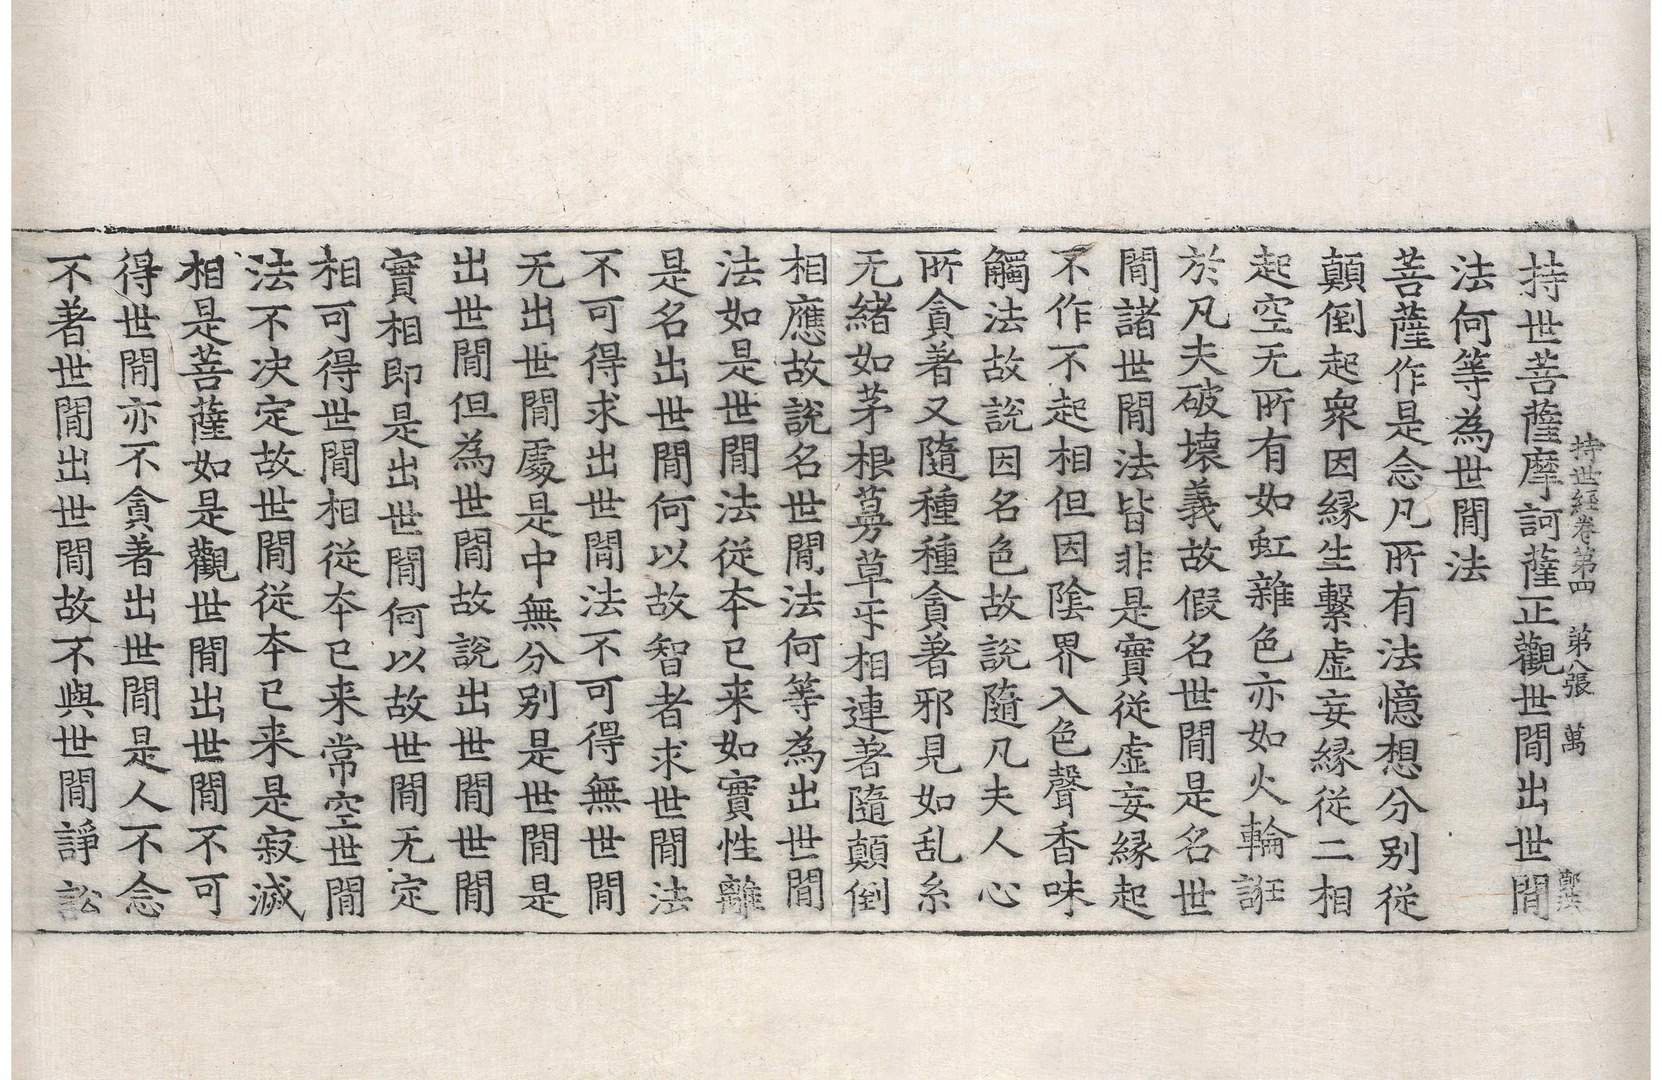 持世經卷第四　第八張　萬
持世菩薩摩訶薩正觀世間出世間
法何等為世間法
菩薩作是念凡所有法憶想分別從
顛倒起衆因緣生繫虛妄緣從二相
起空无所有如虹雜色亦如火輪誑
於凡夫破壞義故假名世間是名世
間諸世間法皆非是實從虛妄緣起
不作不起相但因陰界入色聲香味
觸法故說因名色故說隨凡夫人心
所貪著又隨種種貪著邪見如乱糸
无緒如茅根蔓草乎相連著隨顛倒
相應故說名世間法何等為出世間
法如是世間法從夲已来如實性離
是名出世間何以故智者求世間法
不可得求出世間法不可得無世間
无出世間處是中無分别是世間是
出世間但為世間故說出世間世間
實相即是出世間何以故世間无定
相可得世間相從夲已来常空世間
法不决定故世間從夲已来是寂滅
相是菩薩如是觀世間出世間不可
得世間亦不貪著出世間是人不念
不著世間出世間故不與世間諍訟